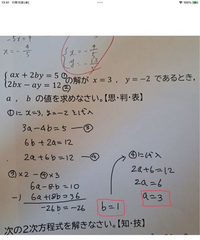 {ax + 2by = 5 ①
{bx - ay = 12 ②
の解が x = 3 , y = -2 であるとき,
a , b の値を求めなさい。【思・判・表】
①に x=3, y=-2 を代入
3a - 4b = 5 ― ③
6b + 2a = 12
2a + 6b = 12 ― ④
③×2 - ④×3
6a - 8b = 10
-) 6a + 18b = 36
-26b = -26
b = 1
④に代入
2a + 6 = 12
2a = 6
a = 3
次の2次方程式を解きなさい。【知・技】